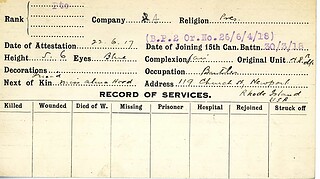 Pte
Rank Company Religion Pres.
(B.P.2 Or.No.26/6/4/18)
Date of Attestation 22.6.17 Date of Joining 15th Can. Battn. 30/3/18.
Height 5.6 Eyes Blue Complexion Fair Original Unit
Decorations Occupation Butcher
friend
Next of Kin Miss Alma Hood Address 119 Church St, Newport
Rhode Island
USA
RECORD OF SERVICES.
Killed Wounded Died of W. Missing Prisoner Hospital Rejoined Struck off